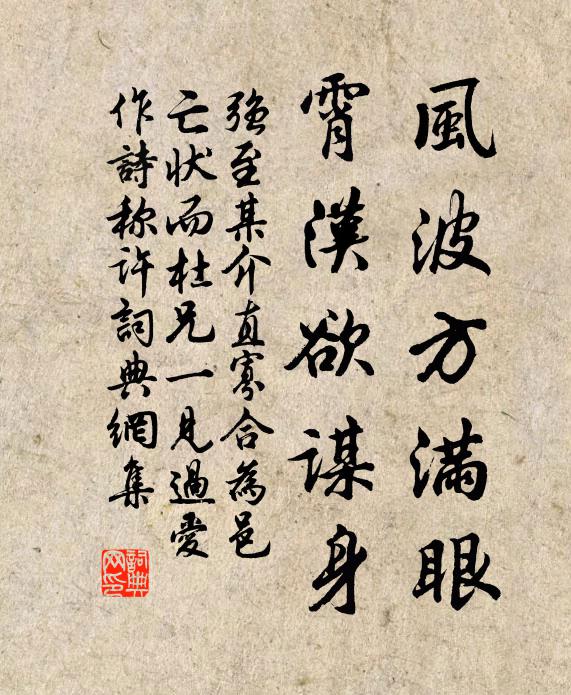 風波方滿眼
霄漢欲謀身
強至某介直寡合為邑
亡狀而杜兄一見過愛
作詩称許詞典網集
詞典
网印